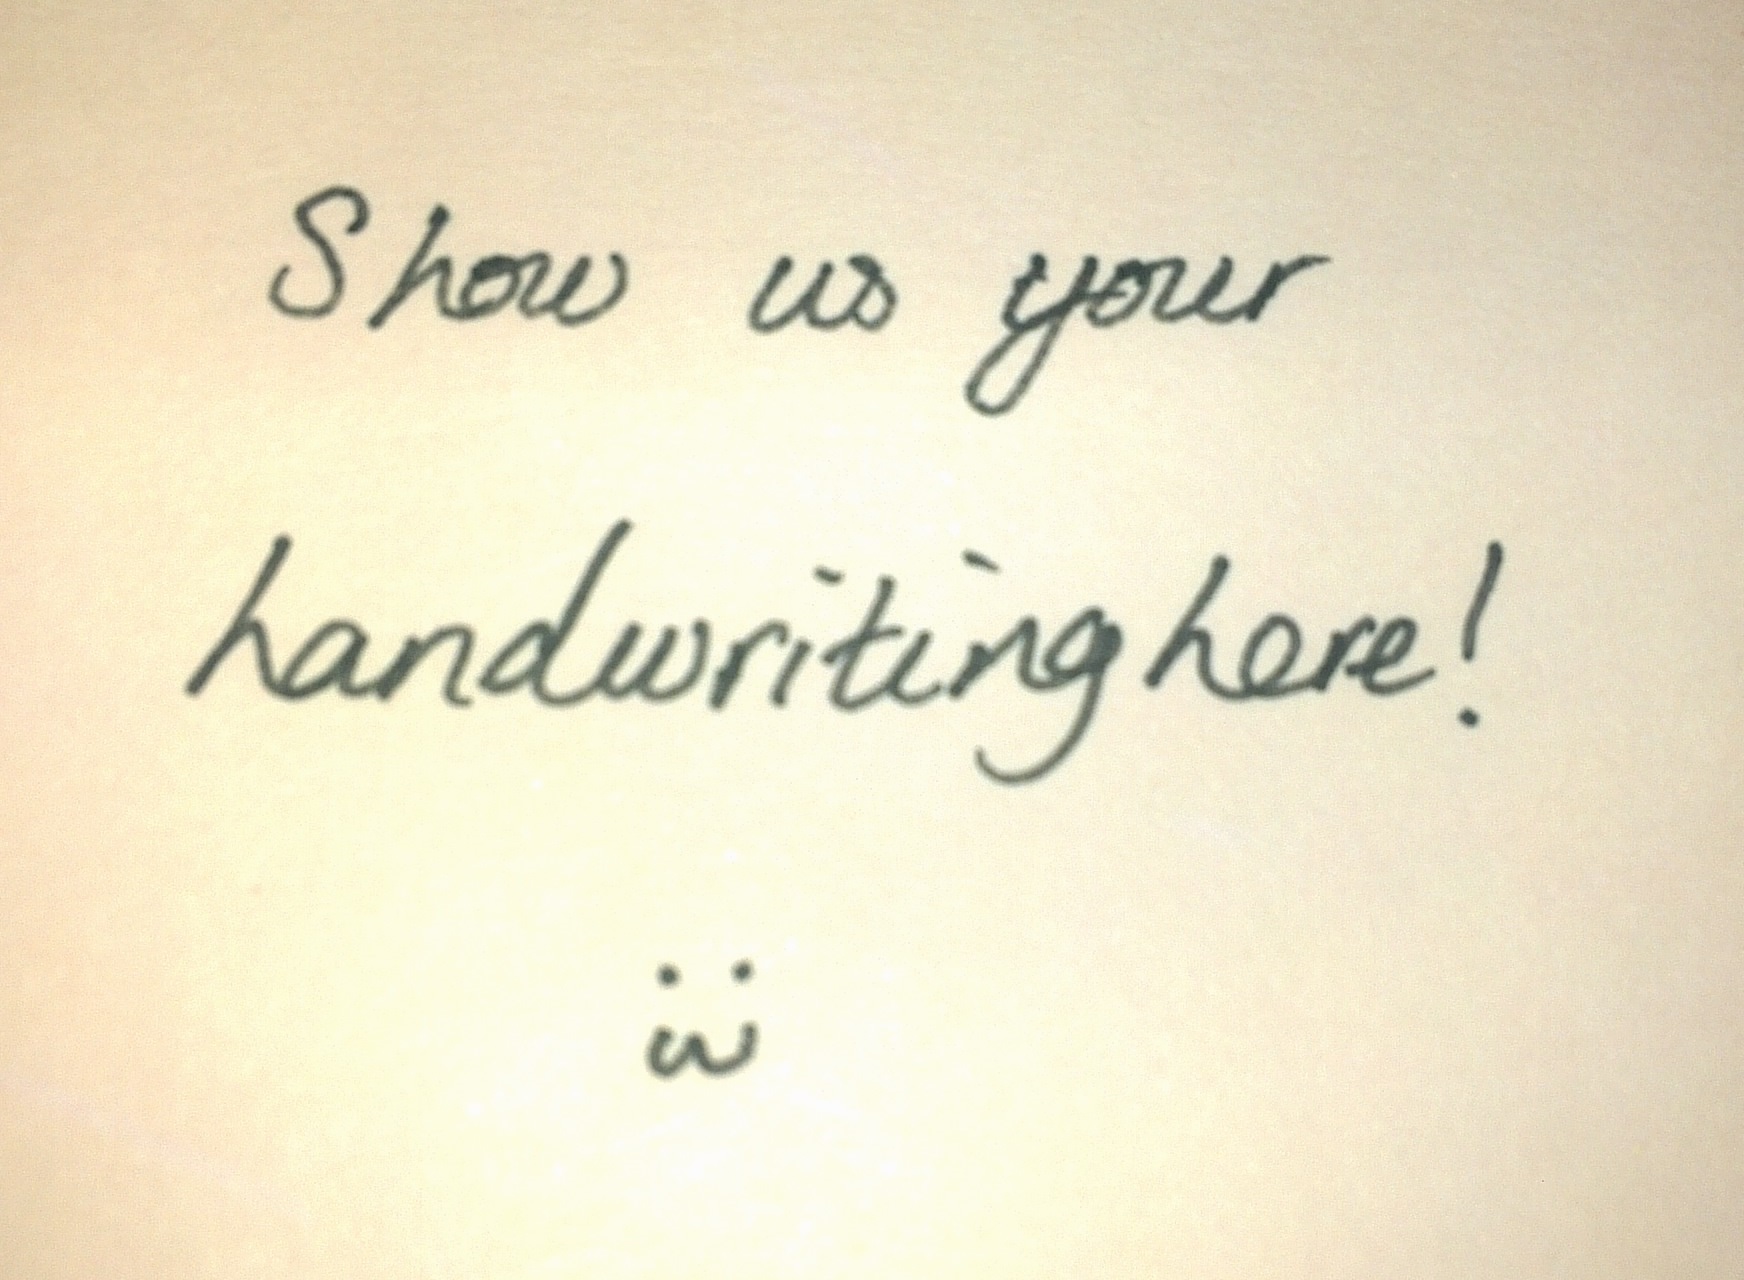 Show us your
handwriting here!
:w